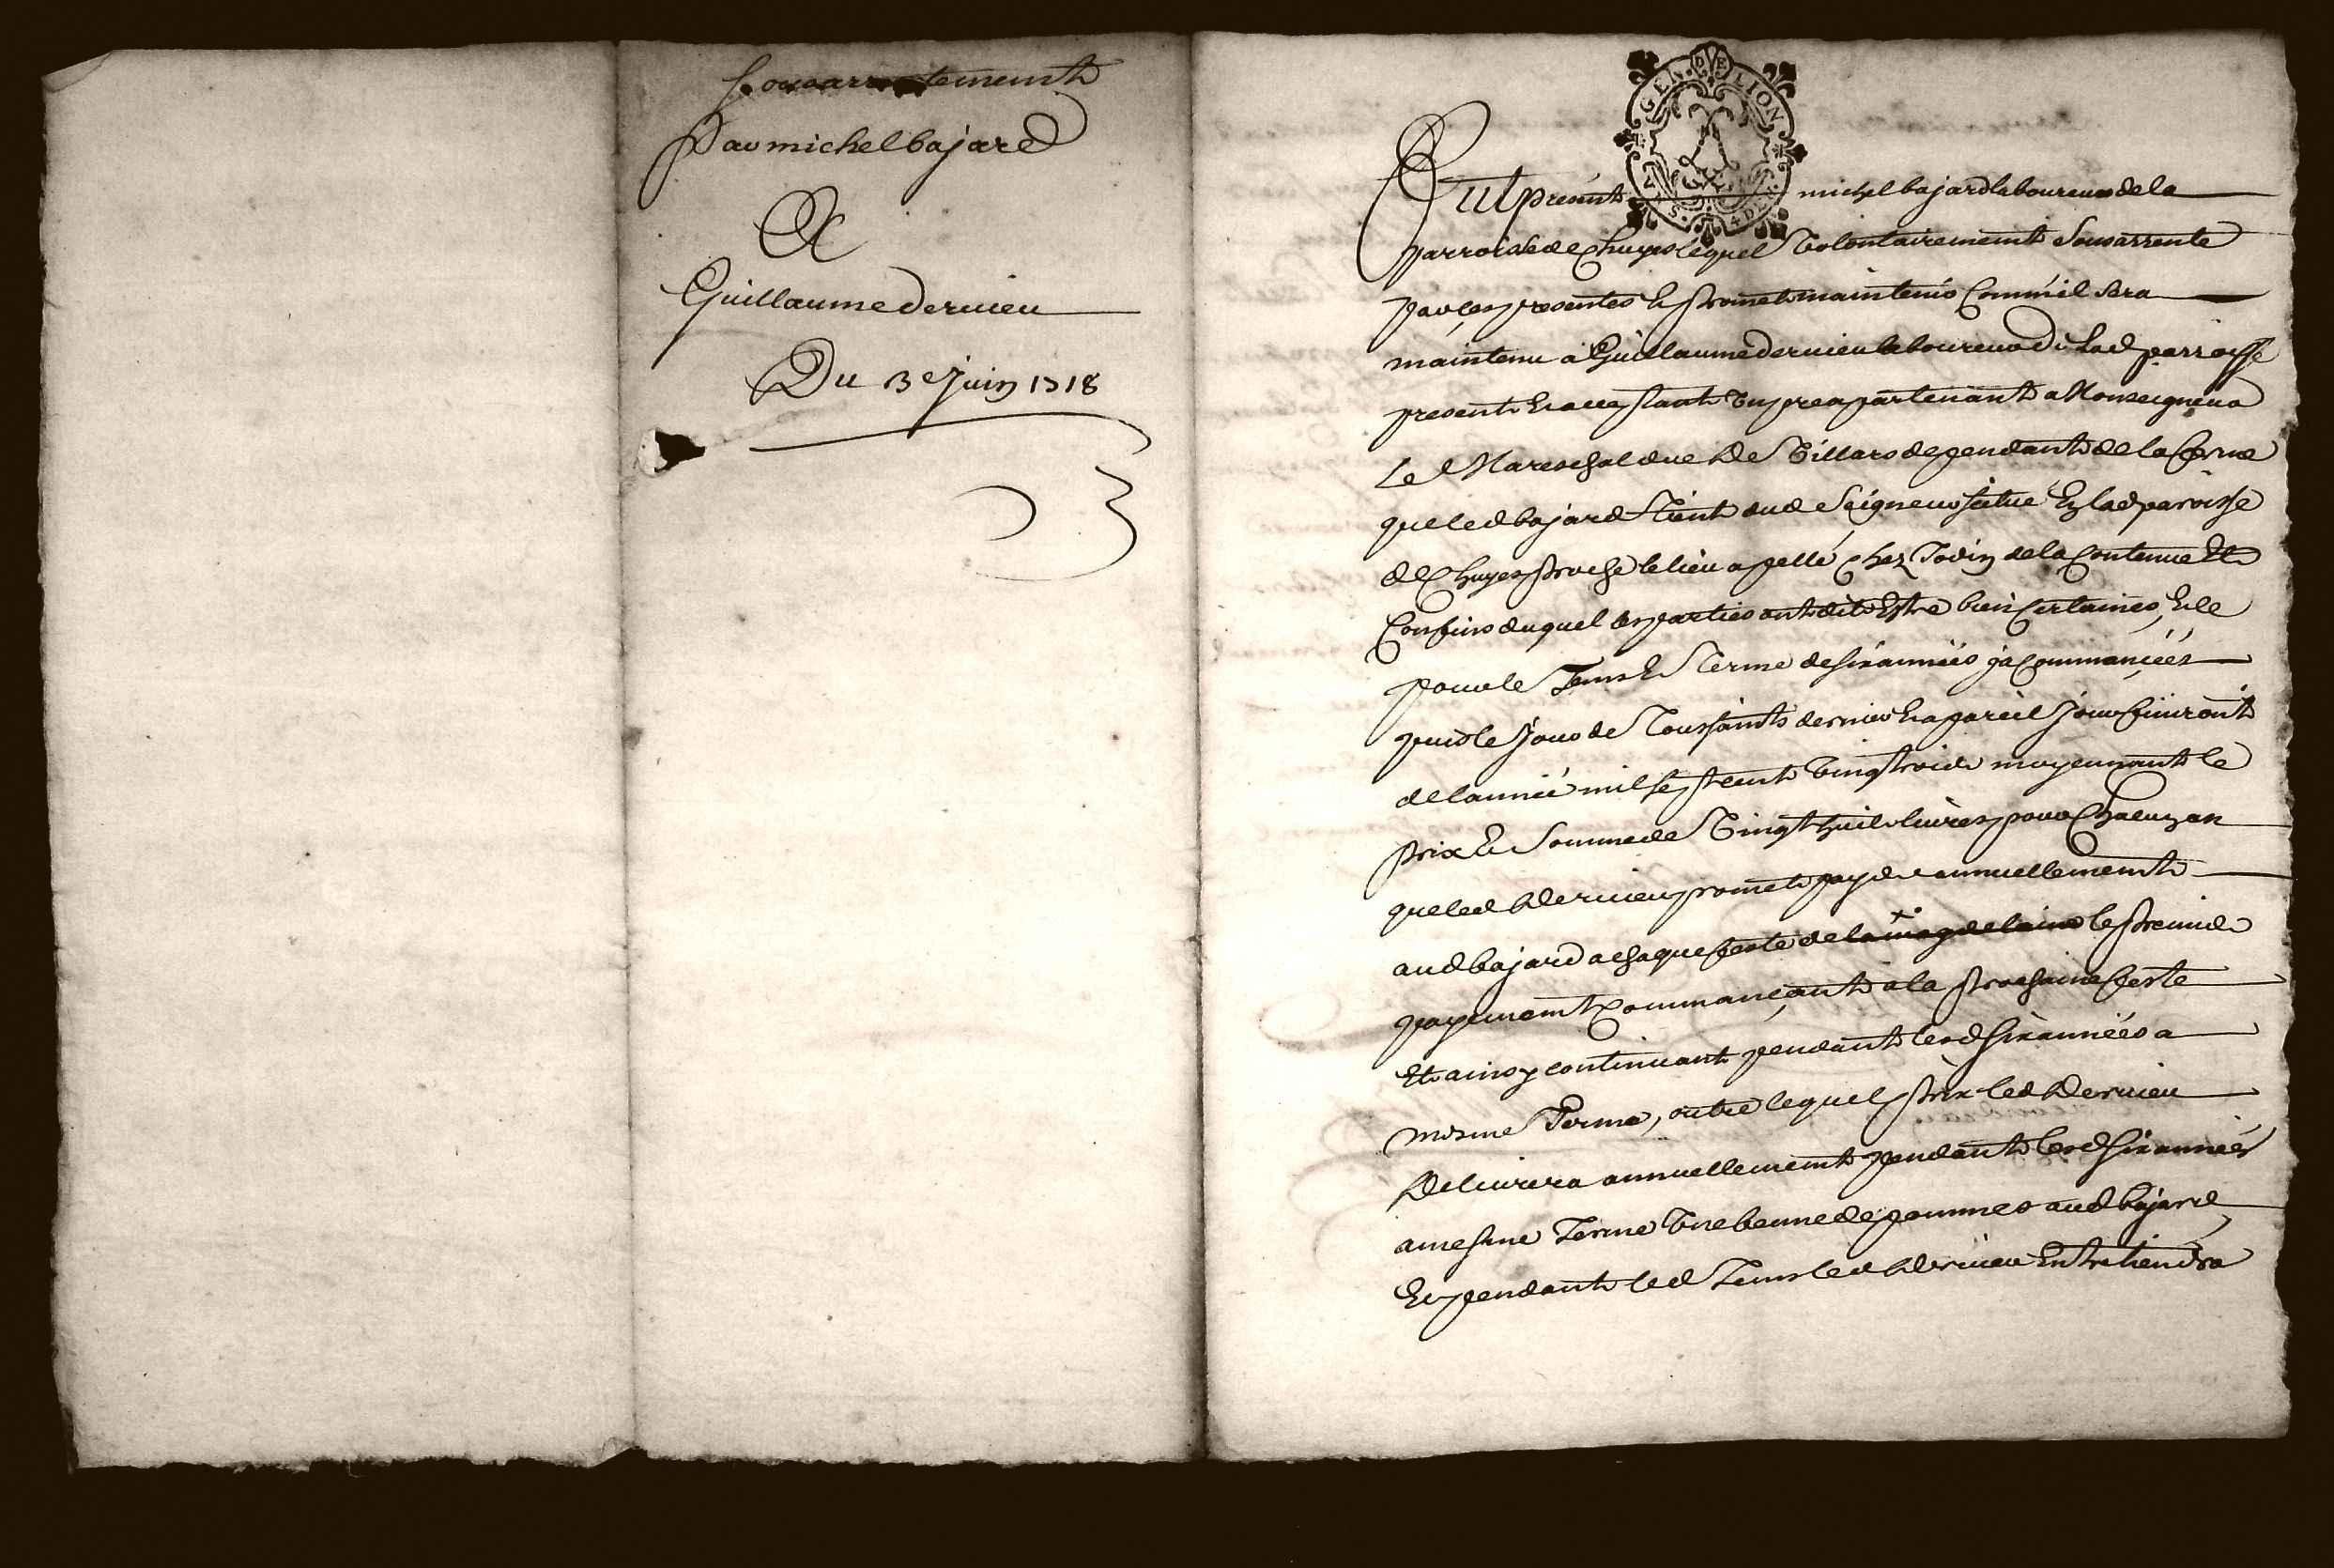 sousarrentement
Par michel bajard
A
Guillaume dervieu
Du 3e Juin 1718
GEN. DE LION
Fut present michel bajard laboureur de la
parroisse de Chuyes lequel Volontairement sousarrente
par ces presentes et promet maintenir Comme il sera
maintenu a Guillaume dervieu laboureur de lad parroisse
present et acceptant Un pre apartenant a Monseigneur
Le Mareschal duc De Villars dependant de la ferme
que led bajard Tient dud Seigneur situé En lad paroisse
de Chuyes proche le lieu apellé chez Jodin de la Contenue Et
Confins duquel les parties ont dit Estre bien Certaines, Et ce
pour le Tems et Terme de six années ja Commançées
puis le Jour de Toussaints dernier et a pareil Jour finiront
de lannée mil sept cent Vingt trois moyennant le
prix et Somme de Vingt huit livres pour Chacun an
que led Dervieu promet payer annuellement
aud bajard a chaque feste de la magdelaine le premier
payement Commançant a la prochaine feste
Et ainsy continuant pendant lesd six années a
mesme Terme, outre lequel prix led Dervieu
Delivrera annuellement pendant lesd six années
a mesme Terme Une benne de pommes aud bajard
Et pendant led Tems led Dervieu Entretiendra